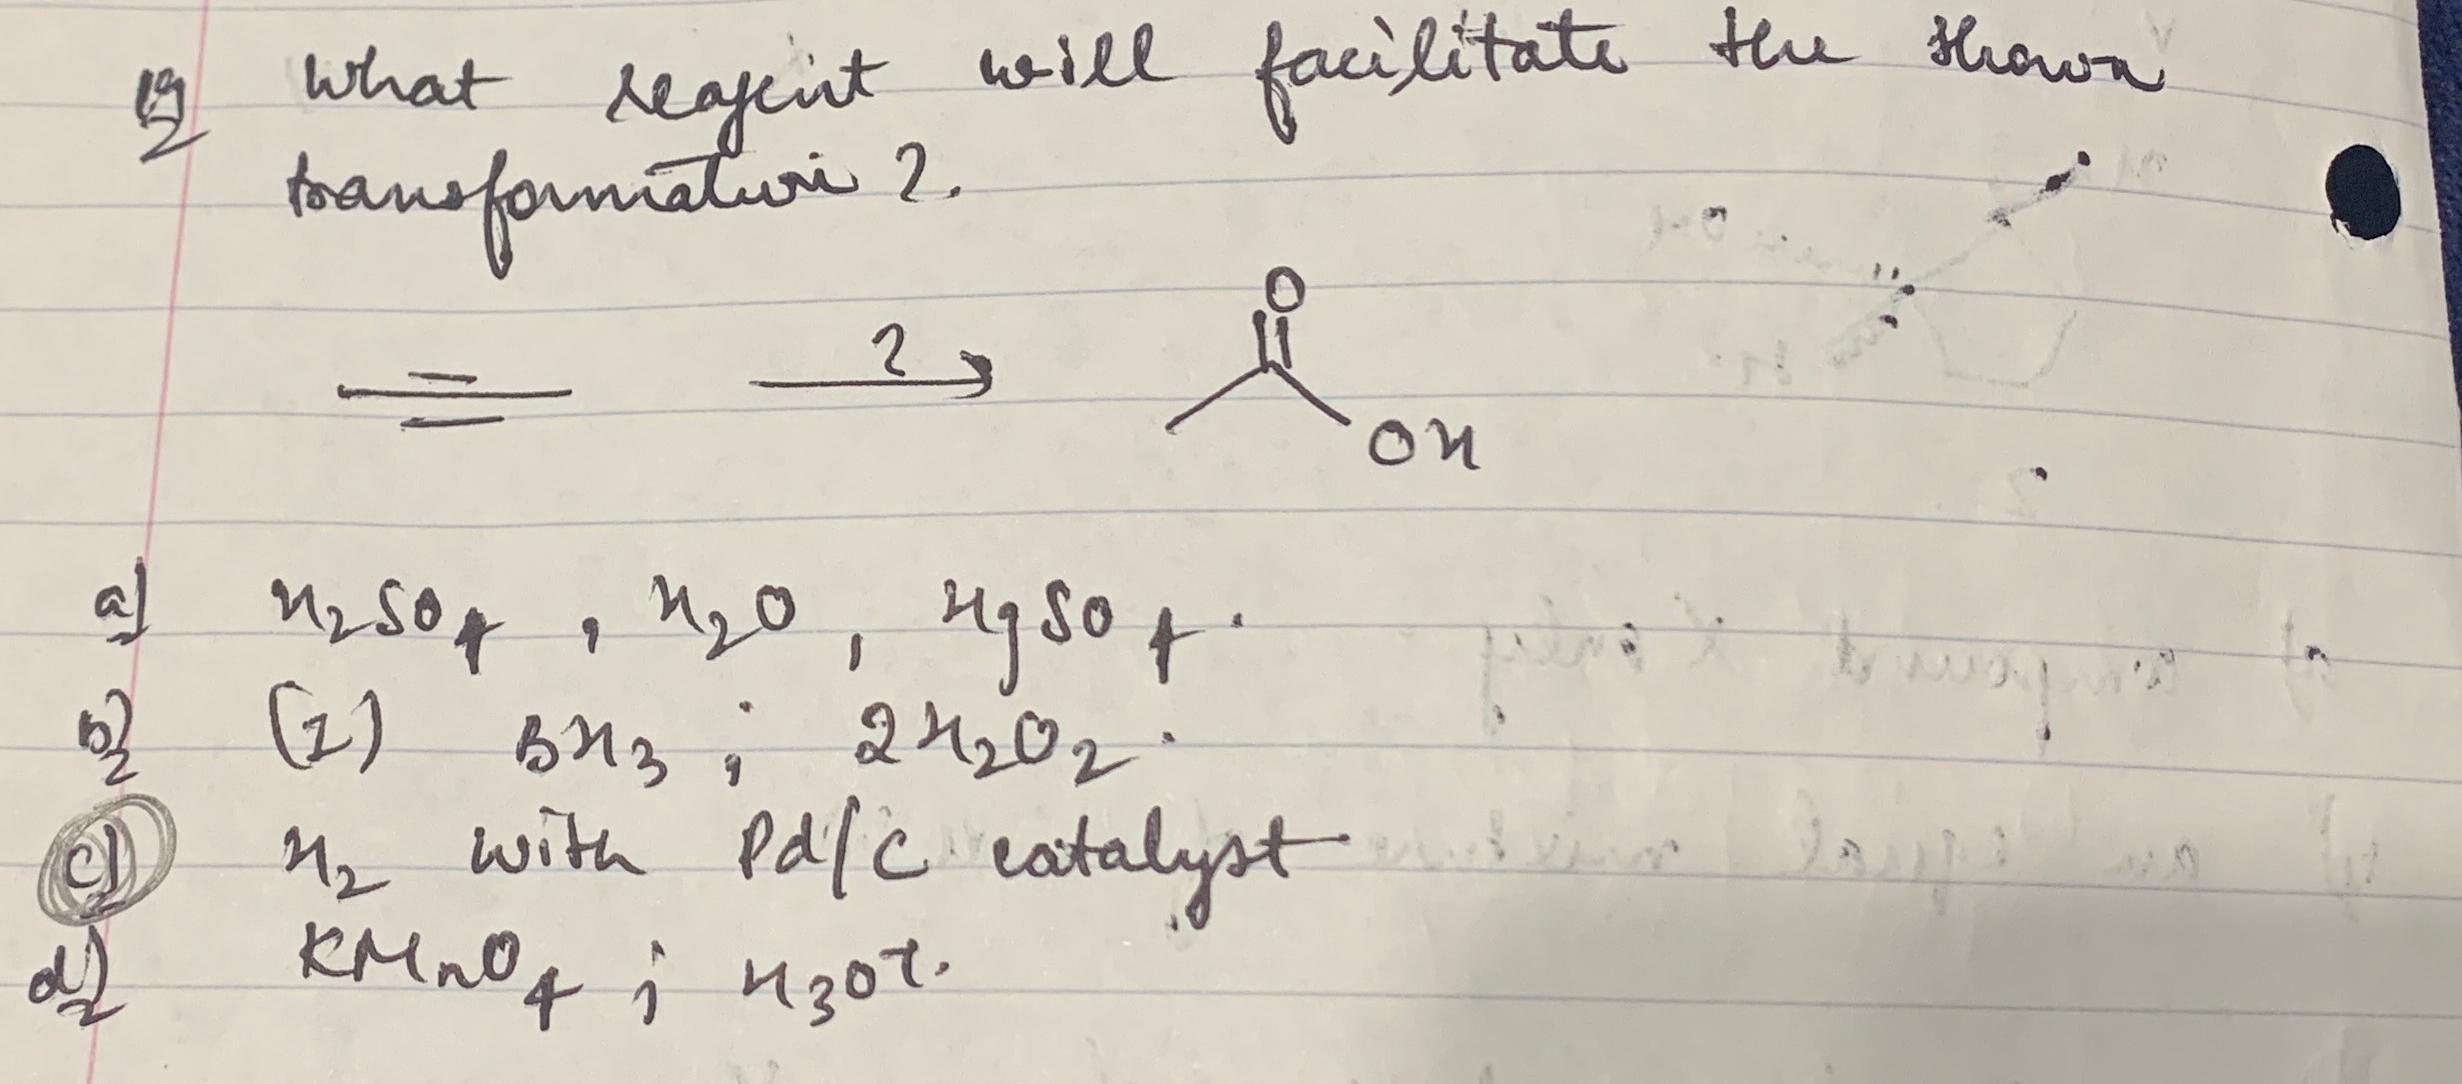 19 What reagent will facilitate the shown
transformation ?.
?
O
OH
a) H2SO4 , H2O , HgSO4.
b) (1) BH3 ; 2H2O2.
c) H2 with Pd/C catalyst
d) KMnO4 ; H3O+.